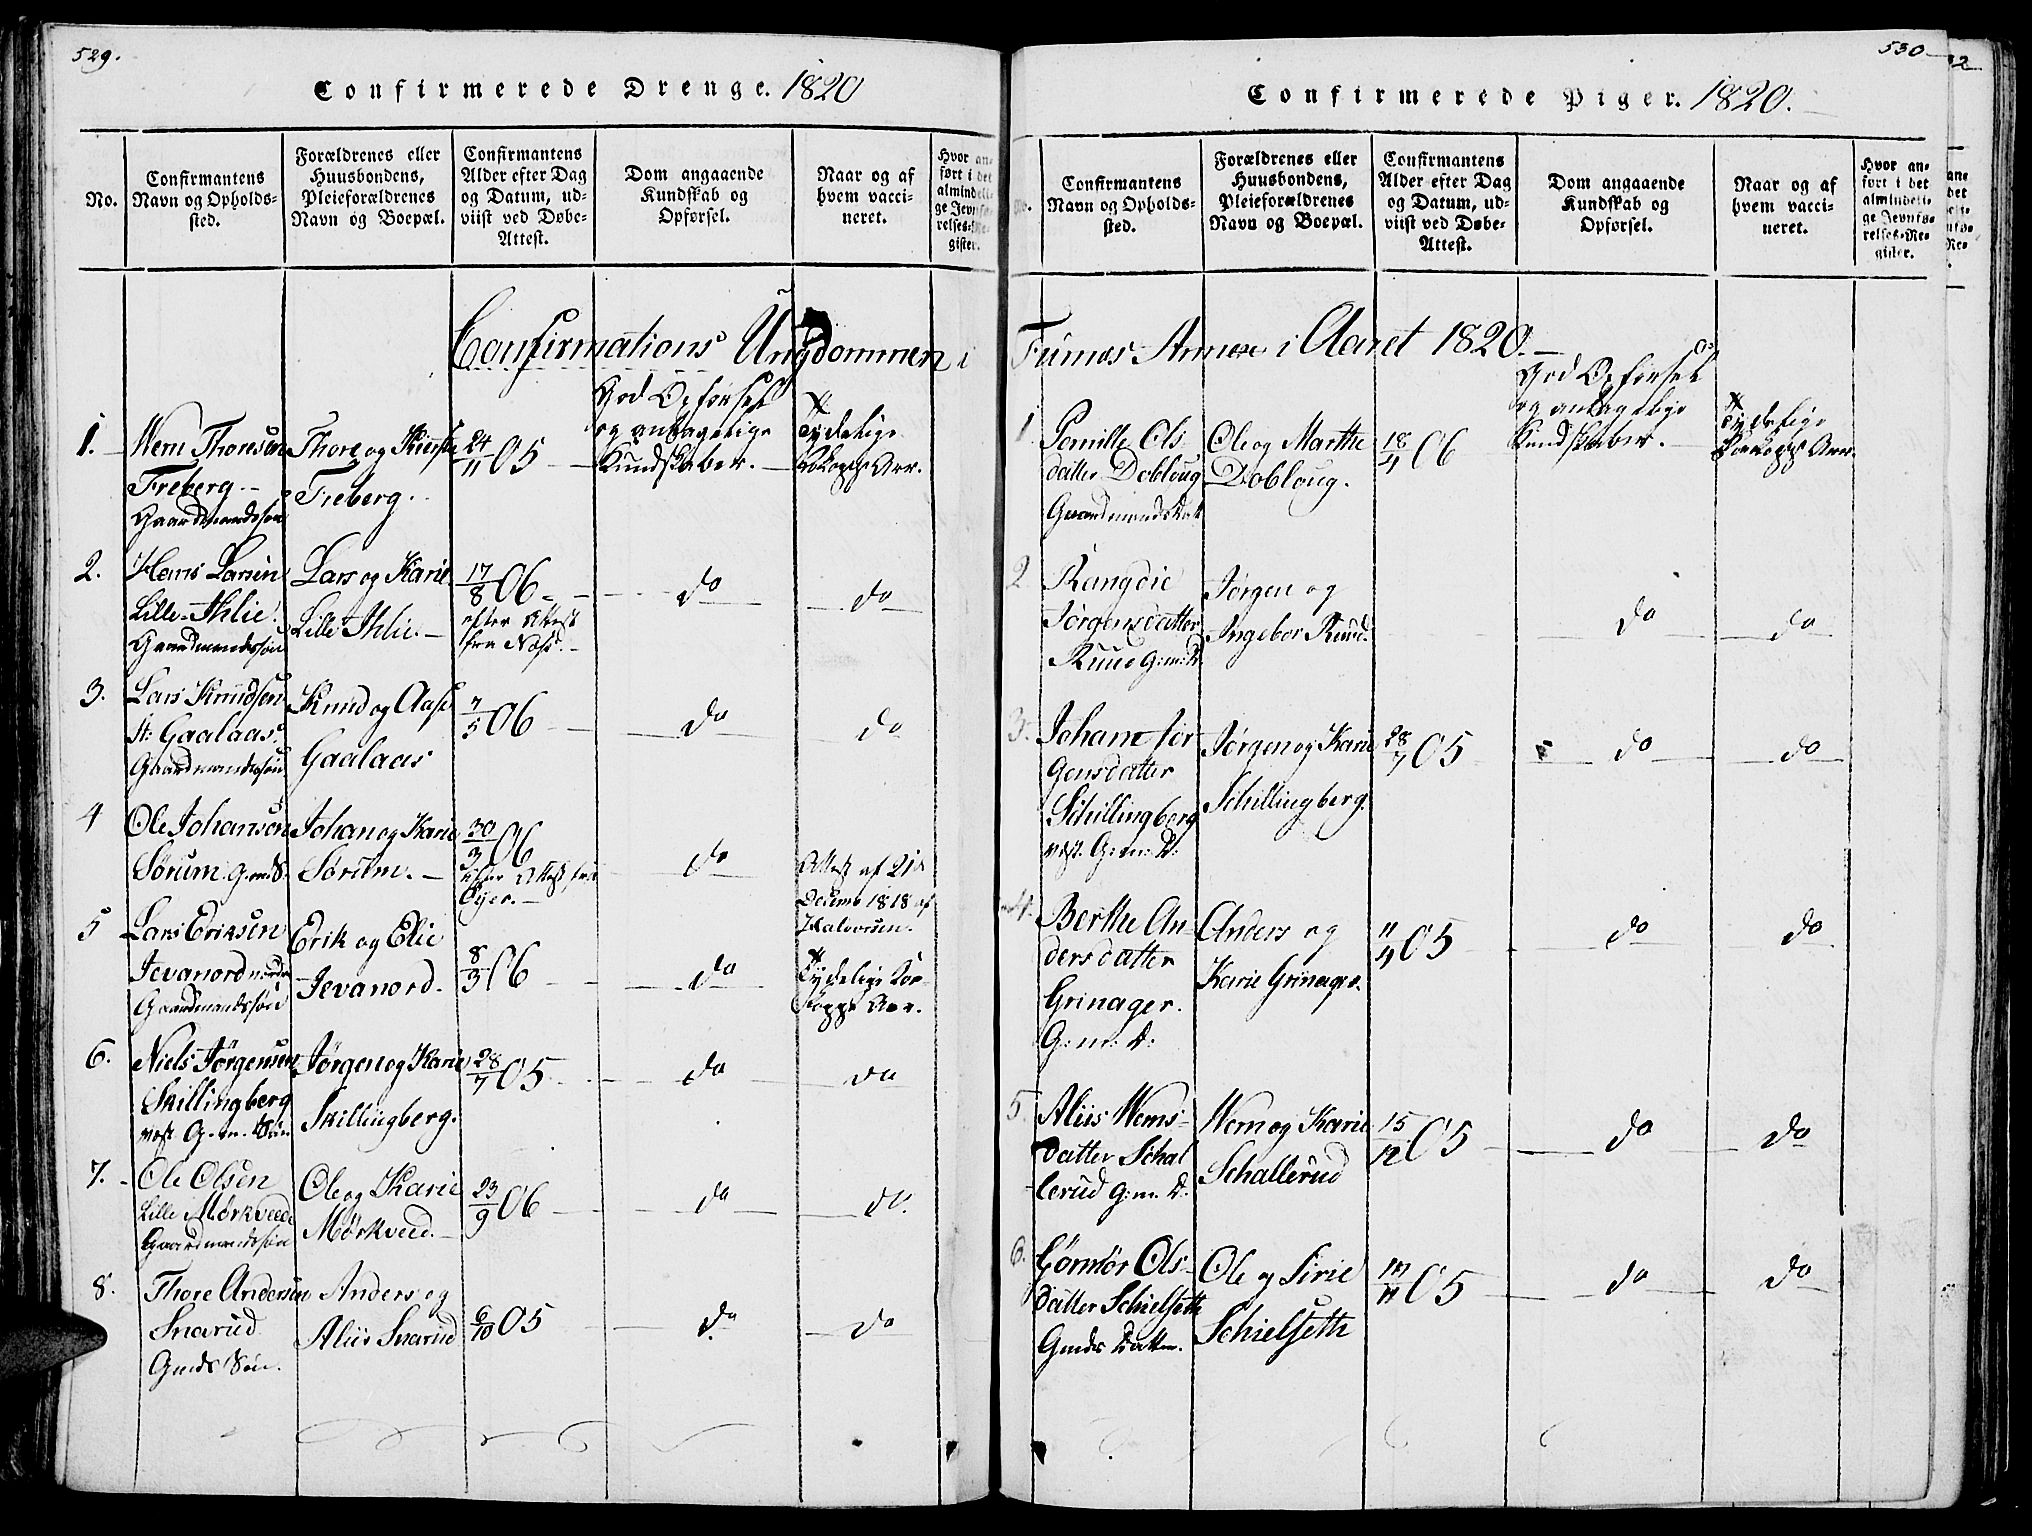 529.
Confirmerede Drenge. 1820
No.
Confirmantens
Navn og Opholds-
sted.
Forældrenes eller
Huusbondens,
Pleieforældrenes
Navn og Boepæl.
Confirmantens
Alder efter Dag
og Datum, ud-
viist ved Døbe-
Attest.
Dom angaaende
Kundskab og
Opførsel.
Naar og af
hvem vacci-
neret.
Hvor an-
ført i det
almindeli-
ge Jevnfø-
relses-Re-
gister.
Confirmations Ungdommen i
1.
Wem Thoresen
Freberg.
Gaardmandssøn
Thore og
Freberg.
24/11 05
God Opførsel
og antagelige
Kundskaber.
Tydelige
Kokopps Arr.
2.
Hans Larsen
Lille-Ihlie.
Gaardmandssøn
Lars og Karie
Lille Ihlie.
17/8 06
efter Attest
fra Næss.
do
do
3.
Lars Knudsen
St: Gaalaas.
Gaardmandssøn
Knud og Aase
Gaalaas
7/5 06
do
do
4
Ole Johansen
Sørum G.m.S.
Johan og Karie
Sørum.
30/3 06
efter Attest fra
Øyer.
do
Attest af 21de
Decembr 1818 af
Halvorsen.
5
Lars Eriksen
Jevanord nordre
Gaardmandssøn
Erik og Elie
Jevanord.
8/3 06
do
Tydelige Ko-
kopps Arr.
6.
Niels Jørgensen
Skillingberg
vest. G.m. Søn
Jørgen og Karie
Skillingberg.
28/7 05
do
do
7.
Ole Olsen
Lille Mørkveed
Gaardmandssøn
Ole og Karie
Mørkveed.
23/9 06
do
do.
8.
Thore Andersen
Snarud
Gmds Søn.
Anders og
Aliis Snarud
6/10 05
do
do
530
Confirmerede Piger. 1820.
Confirmantens
Navn og Opholds-
sted.
Forældrenes eller
Huusbondens,
Pleieforældrenes
Navn og Boepæl.
Confirmantens
Alder efter Dag
og Datum, ud-
viist ved Døbe-
Attest.
Dom angaaende
Kundskab og
Opførsel.
Naar og af
hvem vacci-
neret.
Hvor an-
ført i det
almindeli-
ge Jevnfø-
relses-Re-
gister.
Furnes Annex i Aaret 1820.
1
Pernille Ols
datter Dobloug
Gaardmandsdatt
Ole og Marthe
Dobloug.
18/4 06
God Opførsel
og antagelige
Kundskaber.
Tydelige
Kokopps Arr.
2
Rangdie
Jørgensdatter
Ruud G:m:D.
Jørgen og
Ingebor Ruud.
do
do
3.
Johane Jør
gensdatter
Schillingberg
vest. G:m:D:
Jørgen og Karie
Schillingberg.
28/7 05
do
do
4.
Berthe An-
dersdatter
Grinager.
G:m:D:
Anders og
Karie Grinager.
11/4 05
do
do
5.
Aliis Wems-
datter Schal
lerud G:m:D:
Wem og Karie
Schallerud
15/12 05
do
do
6.
Gørnør Ols-
datter Schielseth
Gmds Datter.
Ole og Sirie
Schielseth
05
do
do